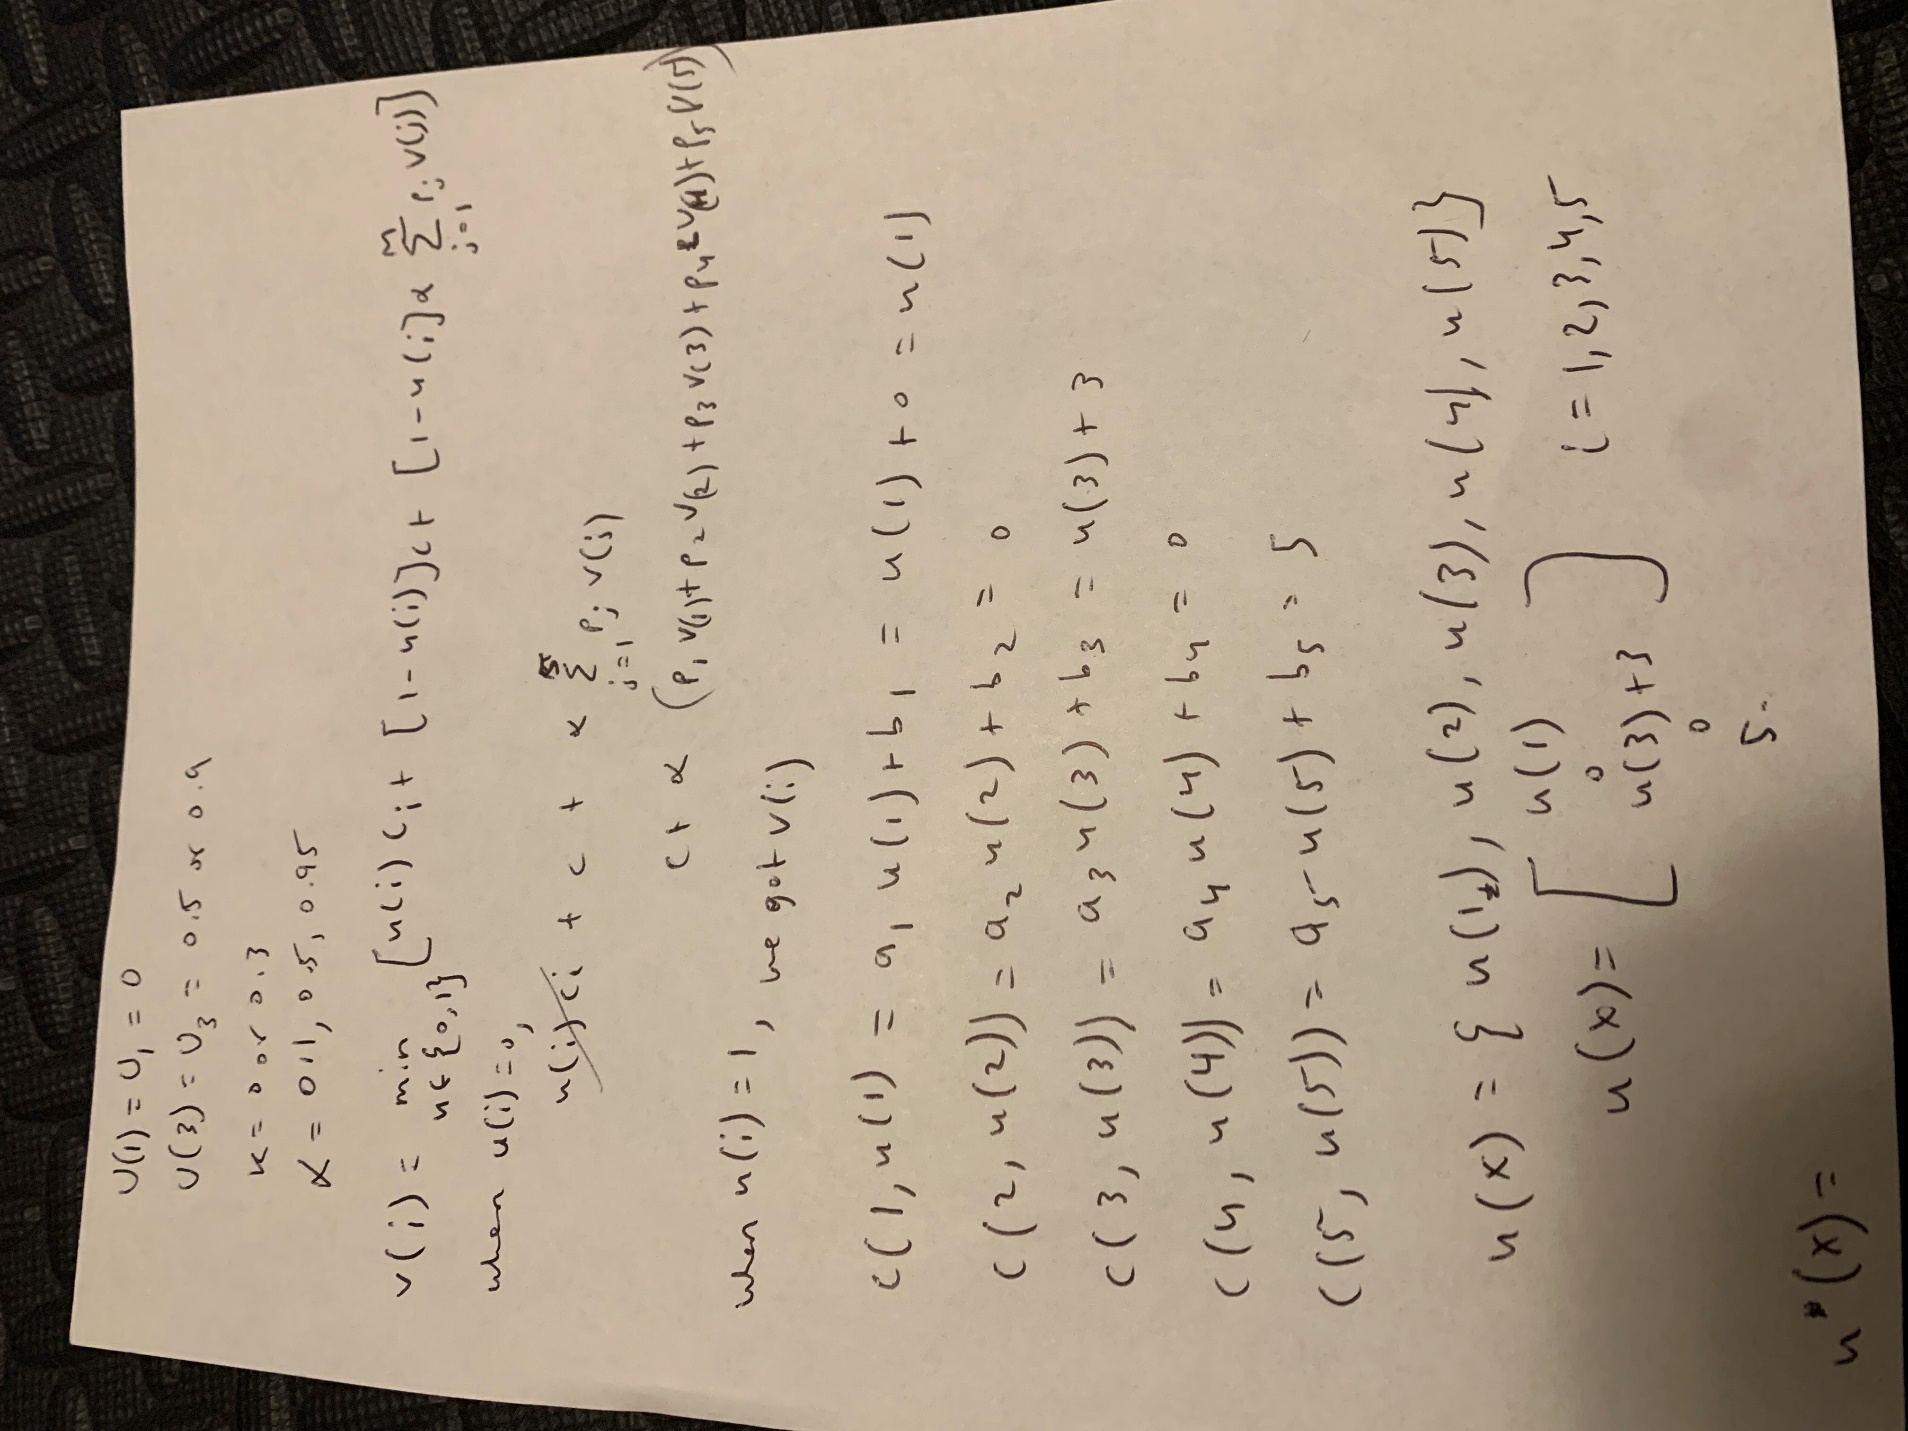 U(1) = U₁ = 0
U(3) = U₃ = 0.5 or 0.9
κ = 0 or 0.3
α = 0.1, 0.5, 0.95
v(i) = min u∈{0,1} [u(i) ci + [1-u(i)]c + [1-u(i)]α Σ j=1 Pj v(j)]
when u(i) = 0,
u(i) ci + c + α Σ j=1 Pj v(j)
c + α (P₁ v(1) + P₂ v(2) + P₃ v(3) + P₄ v(4) + P₅ v(5))
when u(i) = 1, we got v(i)
c(1, u(1)) = a₁ u(1) + b₁ = u(1) + 0 = u(1)
c(2, u(2)) = a₂ u(2) + b₂ = 0
c(3, u(3)) = a₃ u(3) + b₃ = u(3) + 3
c(4, u(4)) = a₄ u(4) + b₄ = 0
c(5, u(5)) = a₅ u(5) + b₅ = 5
u(x) = { u(1), u(2), u(3), u(4), u(5) }
u(x) = [ u(1)
0
u(3) + 3 ] i = 1, 2, 3, 4, 5
0
5.
u*(x) =